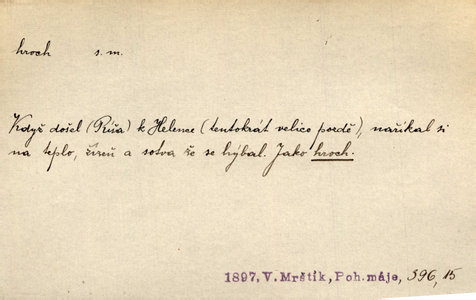 hroch s. m.
Když došel (Ríša) k Helence (tentokrát velice pozdě), naříkal si
na teplo, žízeň a sotva že se hýbal. Jako hroch.
1897, V. Mrštík, Poh. máje, 396, 15